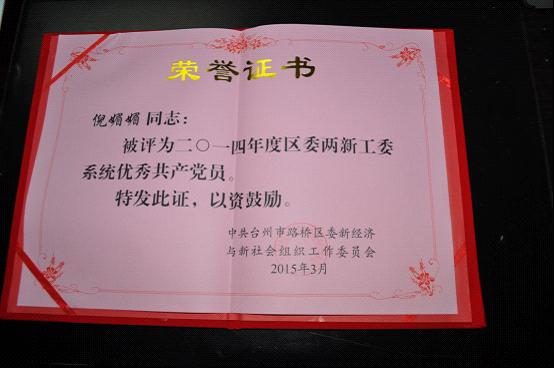 荣誉证书
倪媚媚同志：
被评为二〇一四年度区委两新工委
系统优秀共产党员。
特发此证，以资鼓励。
中共台州市路桥区委新经济
与新社会组织工作委员会
2015年3月